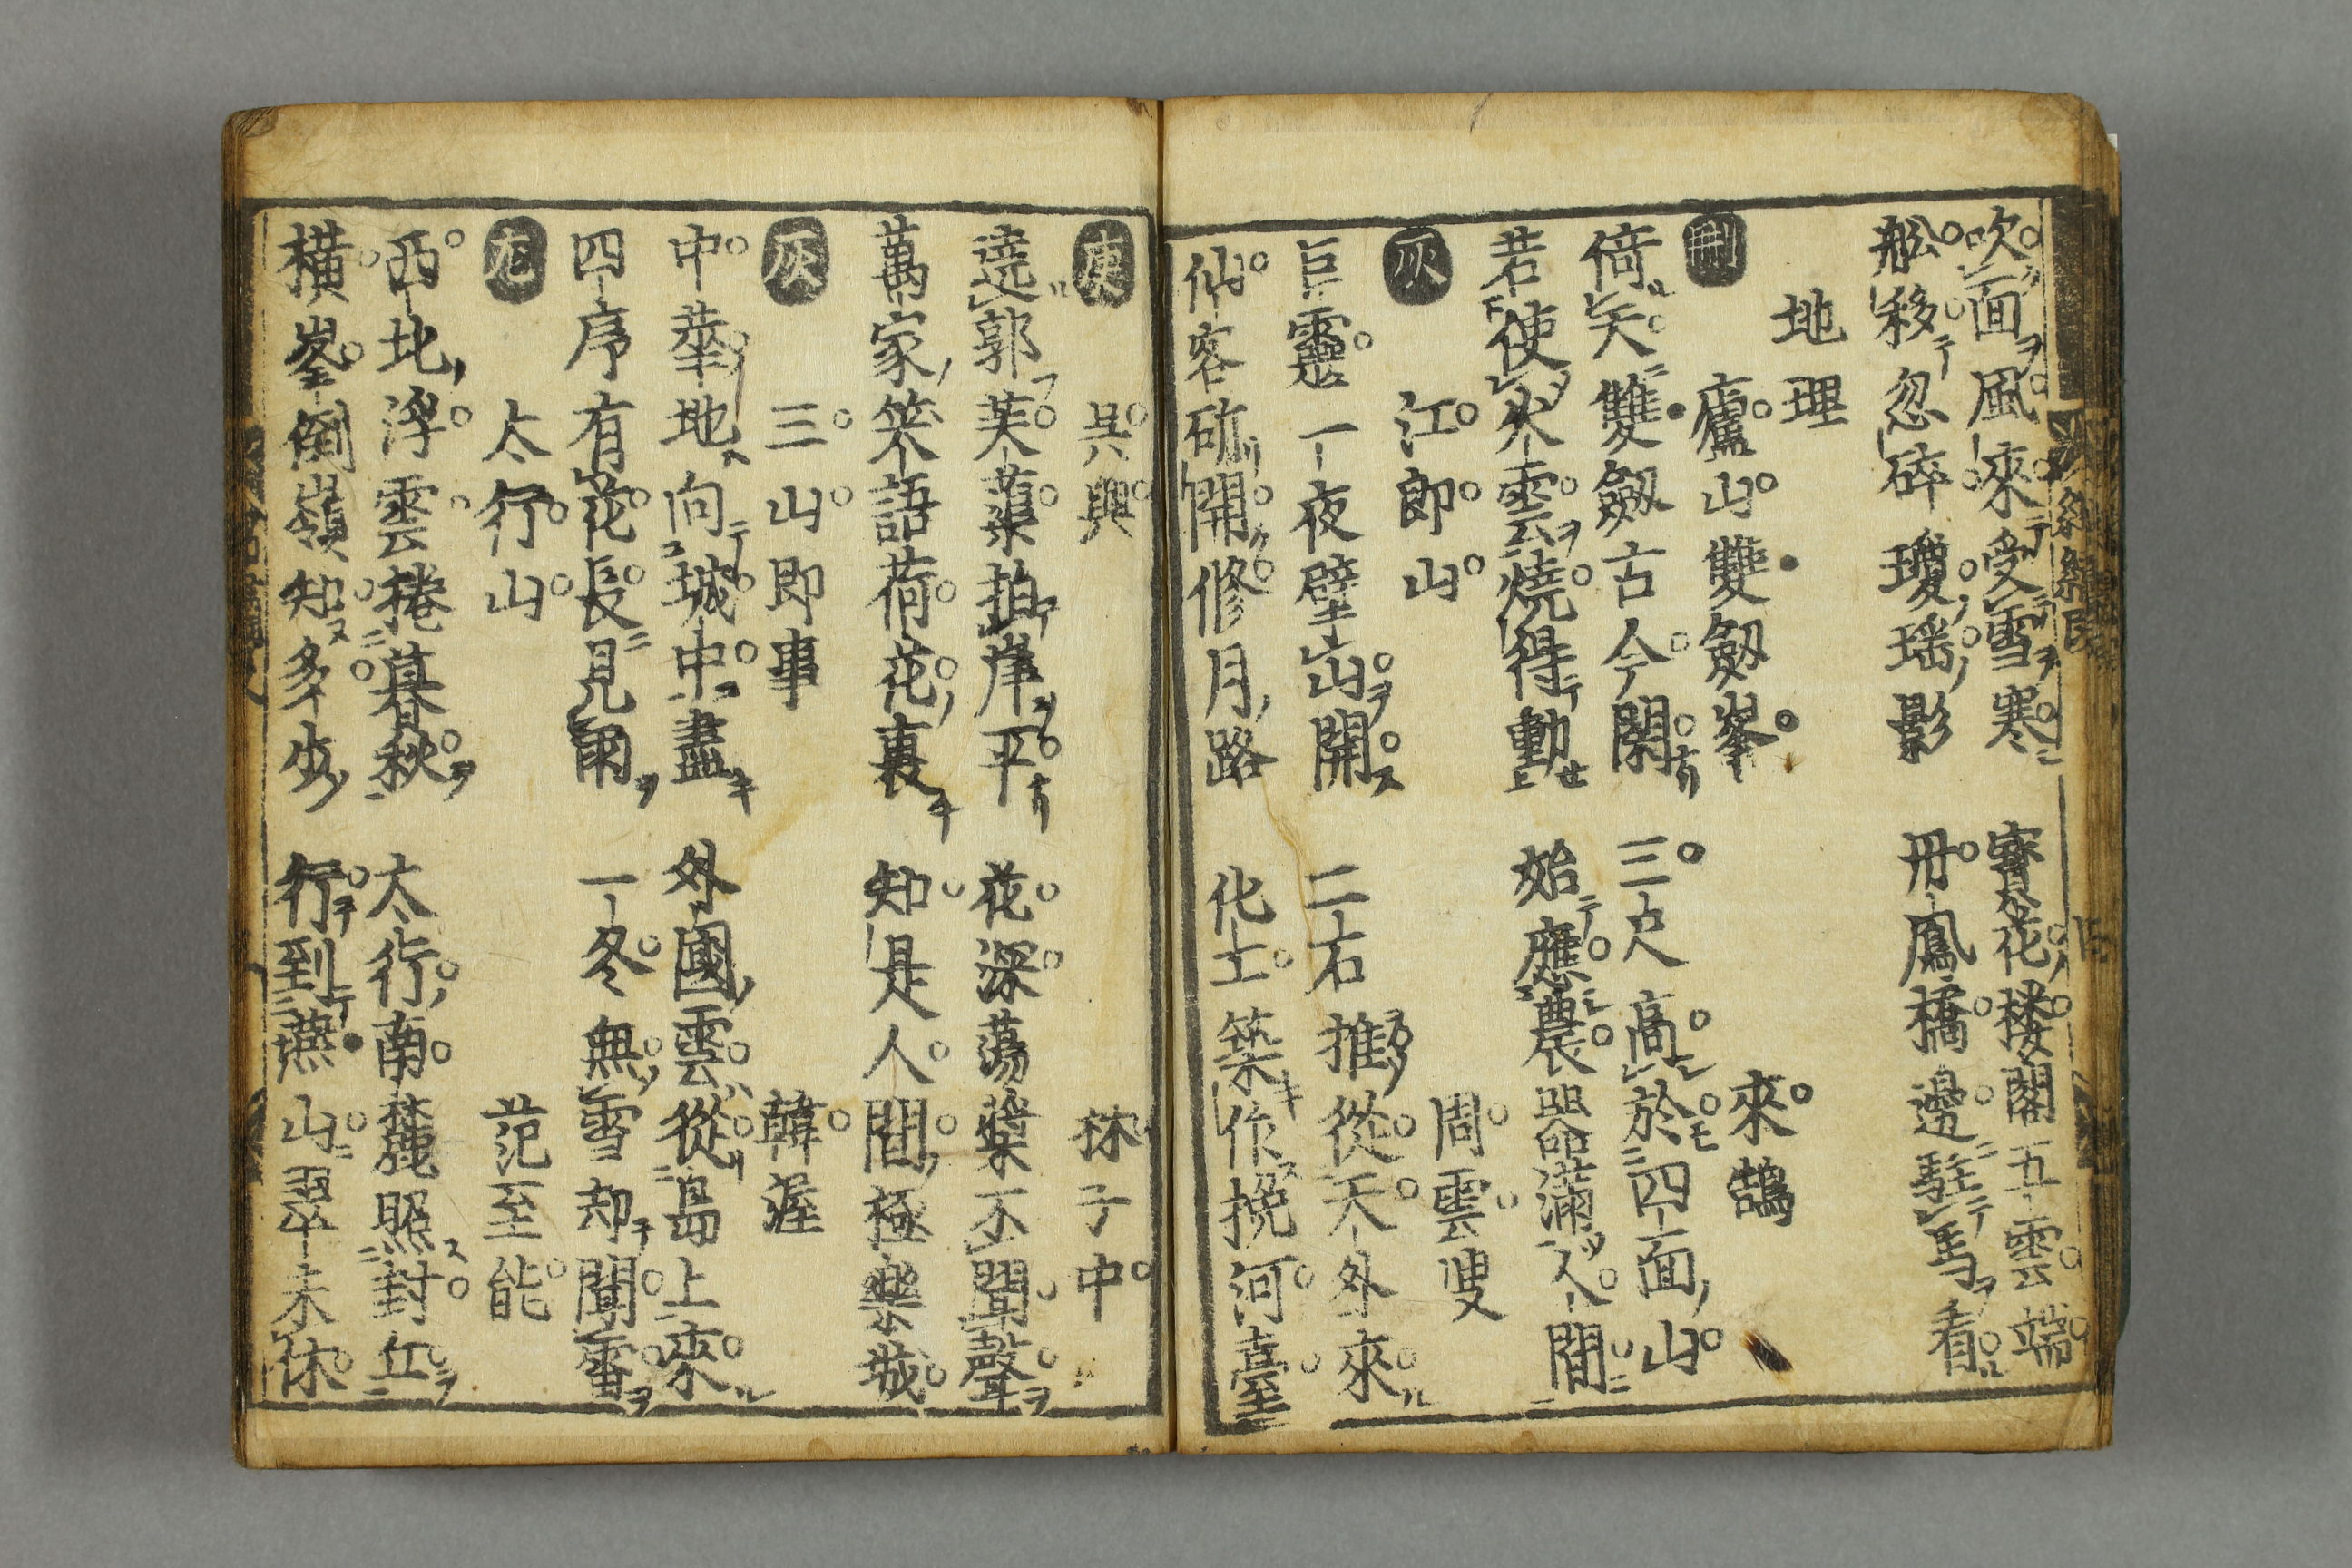 吹面風來受雪寒 寳花楼閣五雲端
舩移忽碎瓊瑶影 丹鳳橋邊駐馬看
地理
刪 廬山雙劔峯 來鵠
倚天雙劔古今閑 三尺高於四面山
若使火雲燒得動 始應農器滿人間
灰 江郎山 周雲叟
巨靈一夜擘山開 二石推從天外來
仙客斫開修月路 化士築作挽河臺
庚 吳興 林子中
遶郭芙蕖拍岸平 花深蕩槳不聞聲
萬家笑語荷花裏 知是人間極樂城
灰 三山即事 韓渥
中華地向城中盡 外國雲從島上來
四序有花長見雨 一冬無雪却聞雷
尤 太行山 范至能
西北浮雲捲暮秋 太行南麓照封丘
橫峯倒嶺知多少 行到燕山翠未休